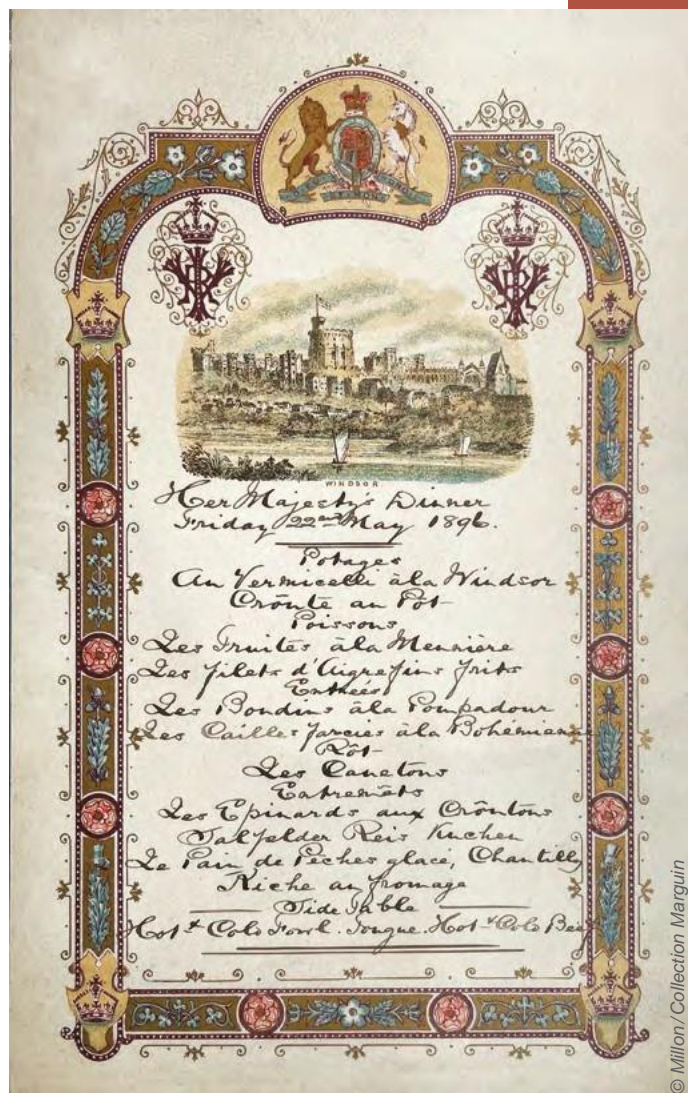 WINDSOR
Her Majesty's Dinner
Friday 22nd May 1896.
Potages
Au Vermicelli à la Windsor
Croûte au Pôt
Poissons
Les Truites à la Meunière
Les filets d'Aigrefins frits
Entrées
Les Boudins à la Pompadour
Les Cailles farcies à la Bohémienne
Rôt
Les Canetons
Entremêts
Les Epinards aux Croûtons
Salfelder Reis Kuchen
Le Pain de Pêches glacé, Chantilly
Niche au fromage
Side Table
Hot & Cold Fowl. Tongue. Hot & Cold Beef
© Millon/Collection Marguin